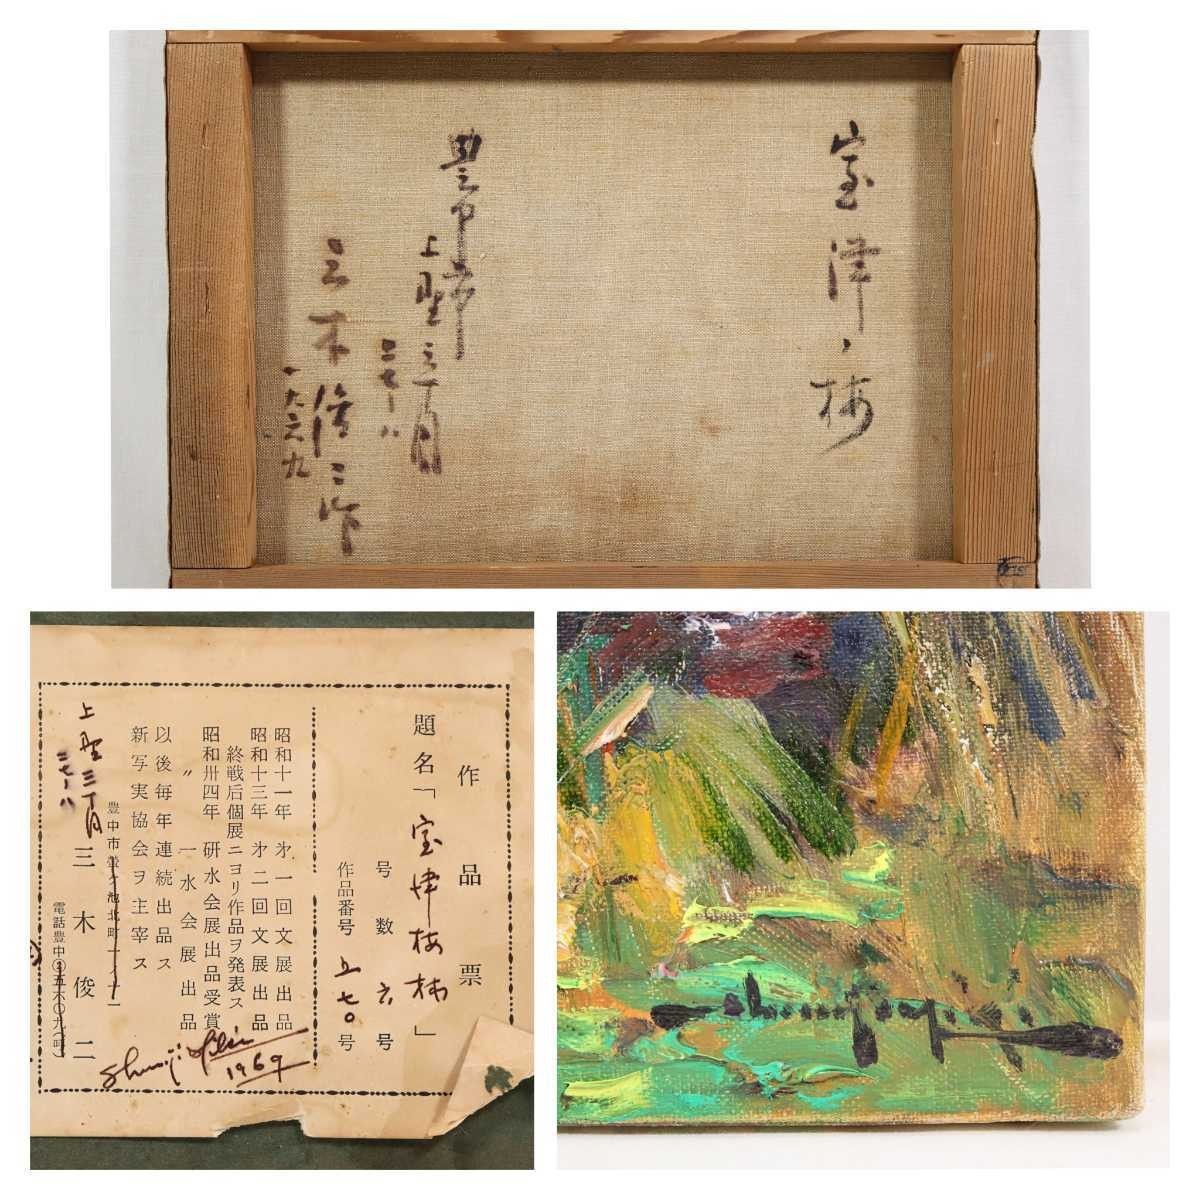 室津ノ梅
豊中市
上野三丁目
二七ー八
三木俊二作
一九六九
作品票
題名「室津梅林」
号数六号
作品番号五七〇号
昭和十一年 才一回文展出品
昭和十三年 才二回文展出品
終戦后個展ニヨリ作品ヲ発表ス
昭和卅四年 研水会展出品受賞
〃 一水会展出品
以後毎年連続出品ス
新写実協会ヲ主宰ス
豊中市蛍ヶ池北町一ノ十二
上野三丁目
二七ー八
三木俊二
電話豊中
Shunji Miki
1969